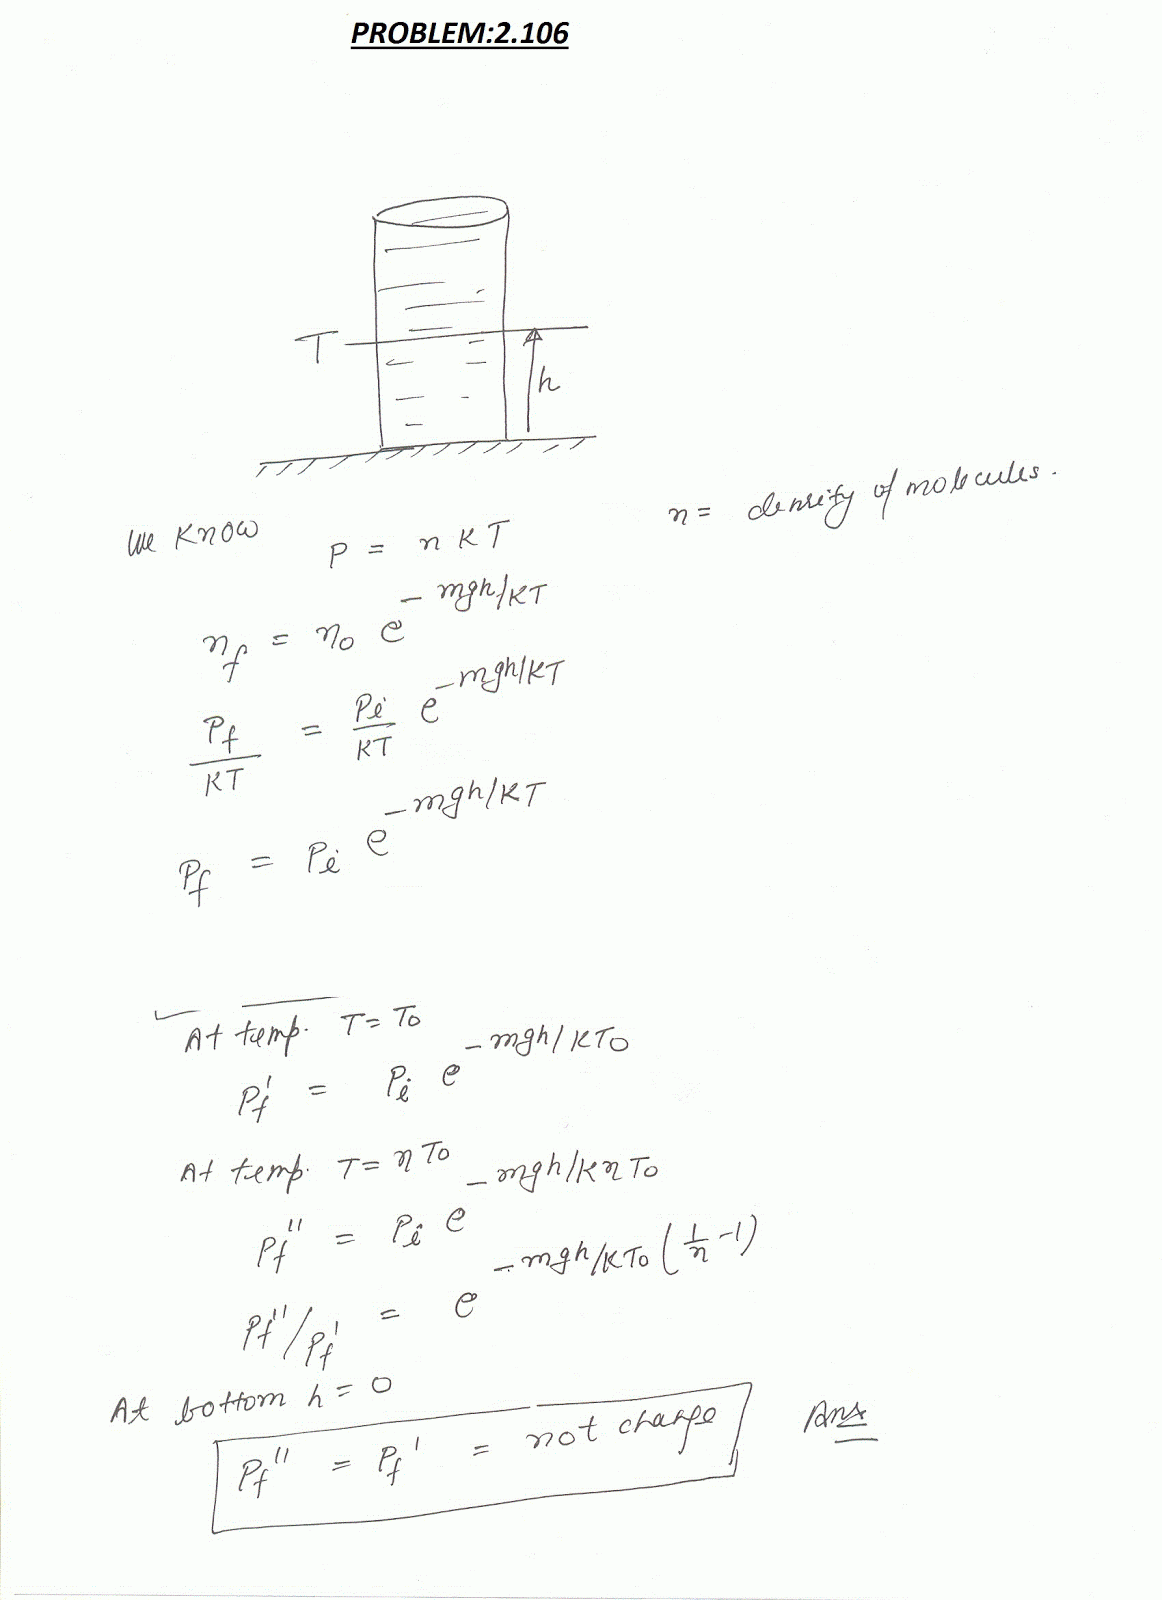 PROBLEM:2.106
T
h
We Know
n = density of molecules.
P = n K T
n_f = n_0 e^{-mgh/KT}
P_f/KT = P_i/KT e^{-mgh/KT}
P_f = P_i e^{-mgh/KT}
At temp. T = T_0
P_f' = P_i e^{-mgh/KT_0}
At temp. T = η T_0
P_f'' = P_i e^{-mgh/KηT_0}
P_f''/P_f' = e^{-mgh/KT_0 (1/η -1)}
At bottom h = 0
P_f'' = P_f' = not change
Ans